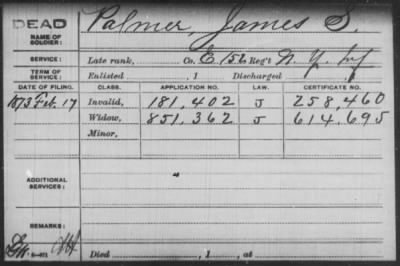 DEAD
NAME OF SOLDIER: Palmer, James S.
SERVICE: Late rank, Co. E 152 Reg't N. Y. Inf
TERM OF SERVICE: Enlisted , 1 Discharged
DATE OF FILING. CLASS. APPLICATION NO. LAW. CERTIFICATE NO.
1873 Feb. 17 Invalid, 181,402 J 258,460
Widow, 851,362 J 614,695
Minor,
ADDITIONAL SERVICES:
REMARKS:
Died , 1 , at